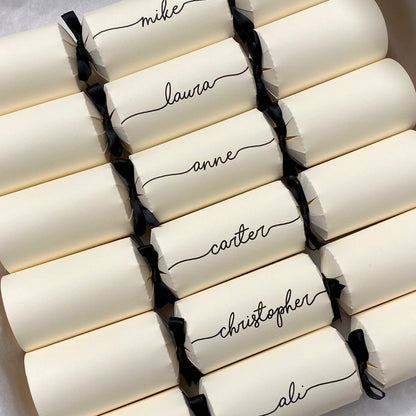 mike
laura
anne
carter
christopher
ali